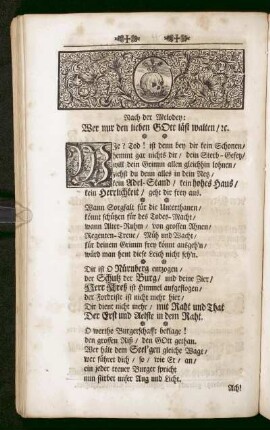 Nach der Melodey:
Wer nur den lieben GOtt läßt walten / ꝛc.
Tod! ist denn bey dir kein Schonen /
hemmt gar nichts dir / dein Sterb-Gesetz /
will dein Grimm allen gleichhin lohnen /
ziehst du denn alles in dein Netz /
kein Adel-Stand / kein hohes Haus /
kein Herrlichkeit / geht dir frey aus.
Wann Sorgfalt für die Unterthanen /
könnt schützen für des Todes-Macht /
wann Alter-Ruhm / von grossen Ahnen /
Regenten-Treue / Müh und Wacht /
für deinem Grimm frey könnt ausgeh'n /
würd man heut diese Leich nicht seh'n.
Dir ist O Nürnberg entzogen /
der Schutz der Burg / und deine Zier /
Herr ist Himmel aufgeflogen /
der ist nicht mehr hier /
Dir dient nicht mehr / mit Raht und That
Der Erst und Aelste in dem Raht.
O werthe Burgerschafft beklage!
den grossen Riß / den GOtt gethan.
Wer hält dem gleiche Wage /
wer führet dich / so / wie Er / an /
ein jeder treuer Burger spricht
nun stirbet unser Aug und Licht.
Ach!